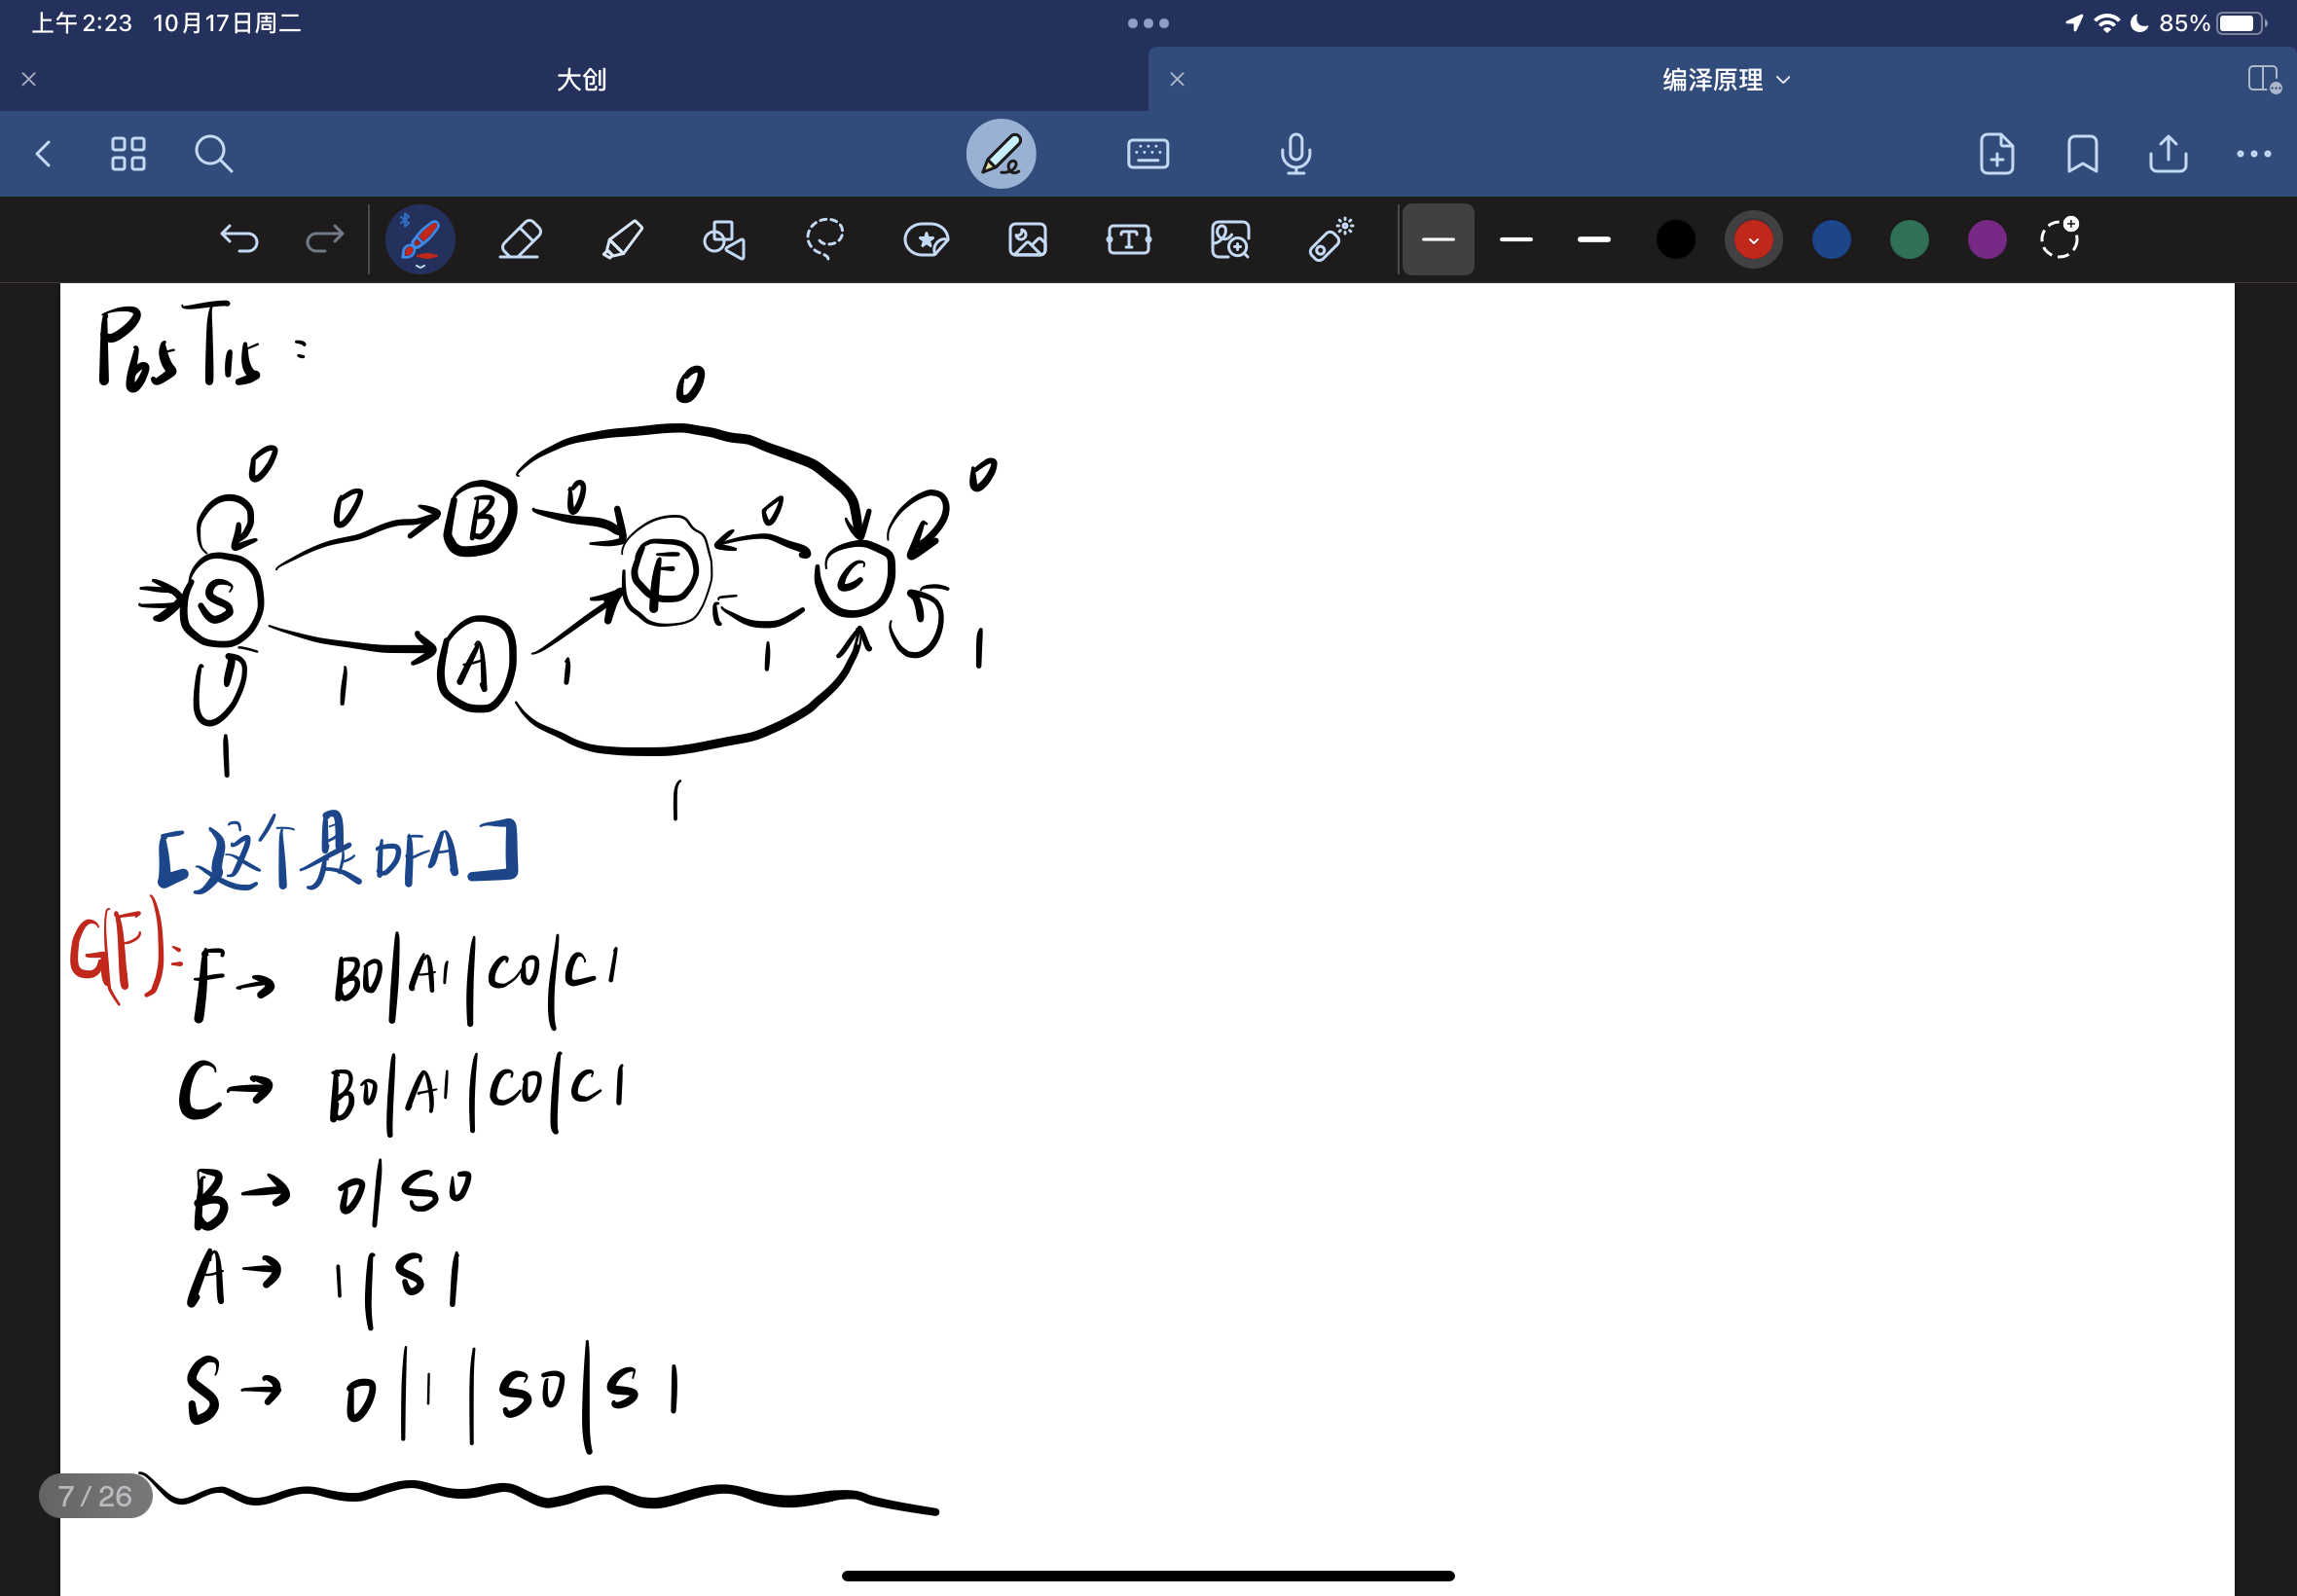 上午2:23 10月17日周二 85%
大创 编泽原理
P65 T15:
0
0 0 0
0 B 0
S F C
A 1 1 1
1
1 1
[这个是DFA]
G(F): F→ B0|A1|C0|C1
C→ B0|A1|C0|C1
B→ 0|S0
A→ 1|S1
S→ 0|1|S0|S1
7/26